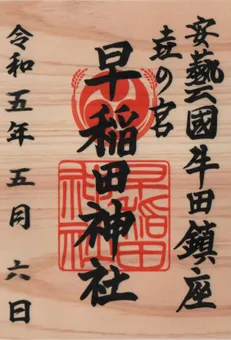 安藝國牛田鎮座
壱の宮
早稲田神社
早稲田神社
令和五年五月六日